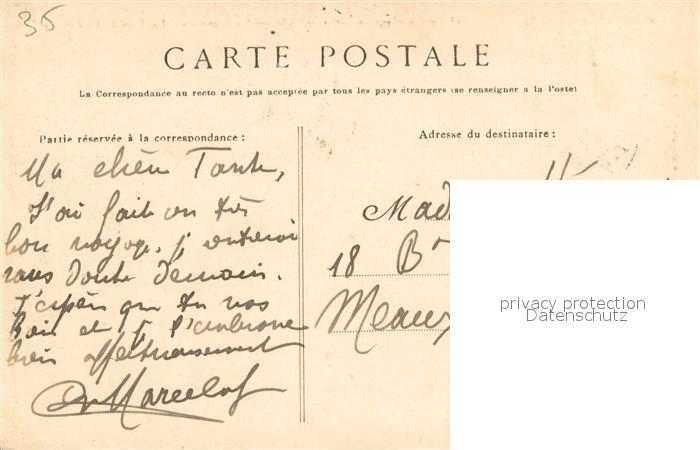 35
CARTE POSTALE
La Correspondance au recto n'est pas acceptée par tous les pays étrangers (se renseigner a la Poste)
Partie réservée à la correspondance :
Adresse du destinataire :
Ma chère Tante,
J'ai fait un très
bon voyage. j'
sans doute demain.
J'espère que tu vas
bien et je t'embrasse
bien affectueusement
Marcel
Mad
18 Bd
Meaux
privacy protection
Datenschutz